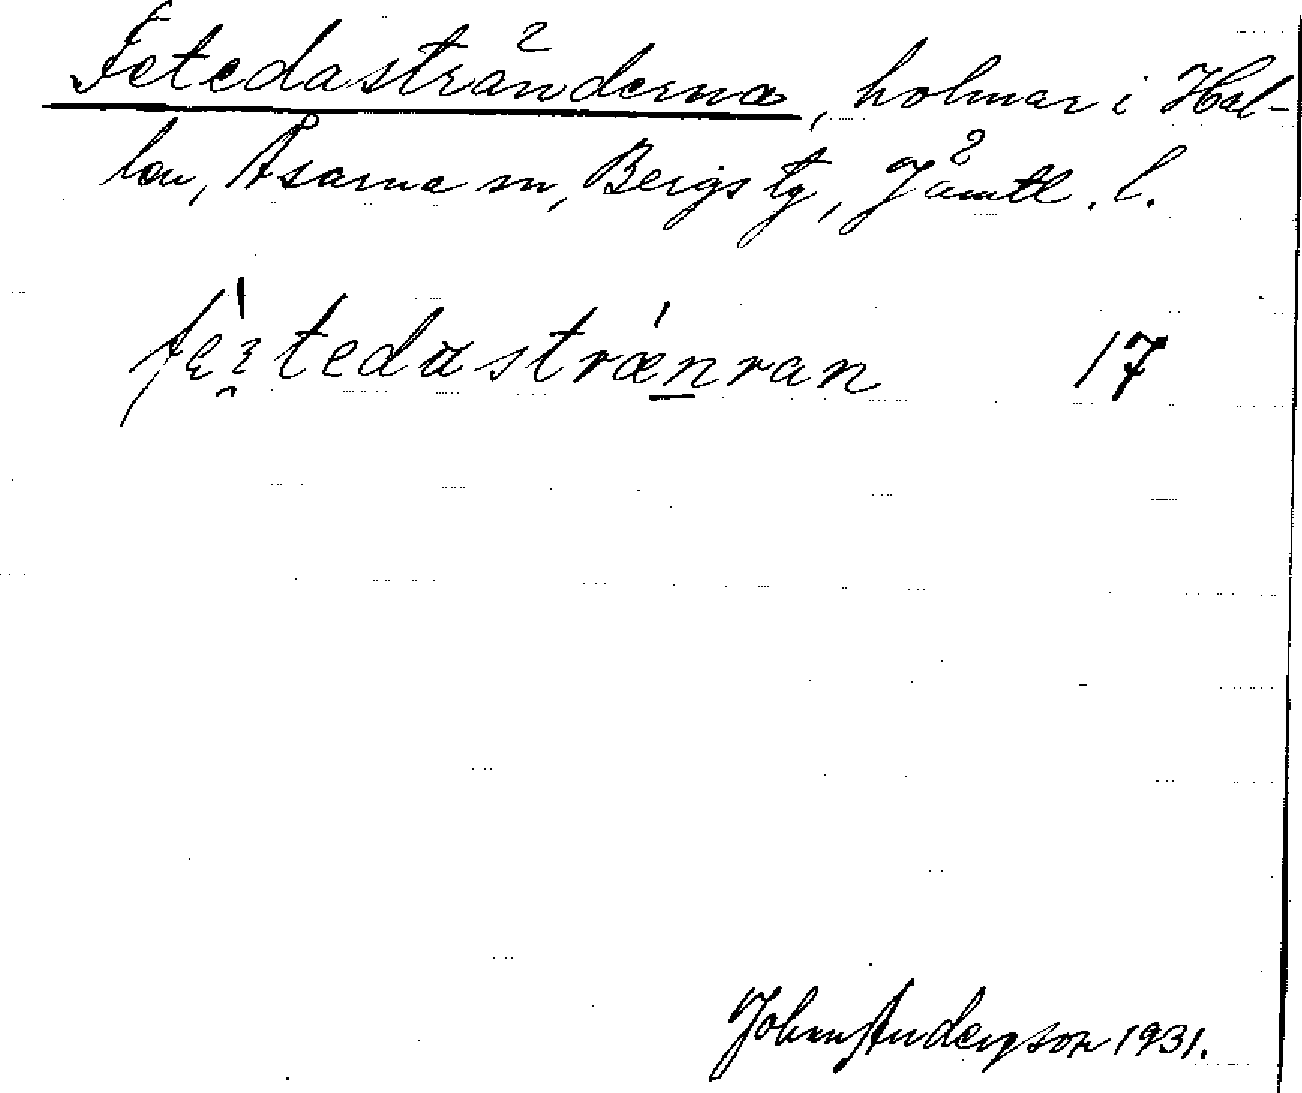 Fetedastränderna, holmar i Hal-
len, Åsarna sn, Bergs tg, Jämtl. l.
fè̀ɛtedastrǽnran 17
John Anderson 1931.